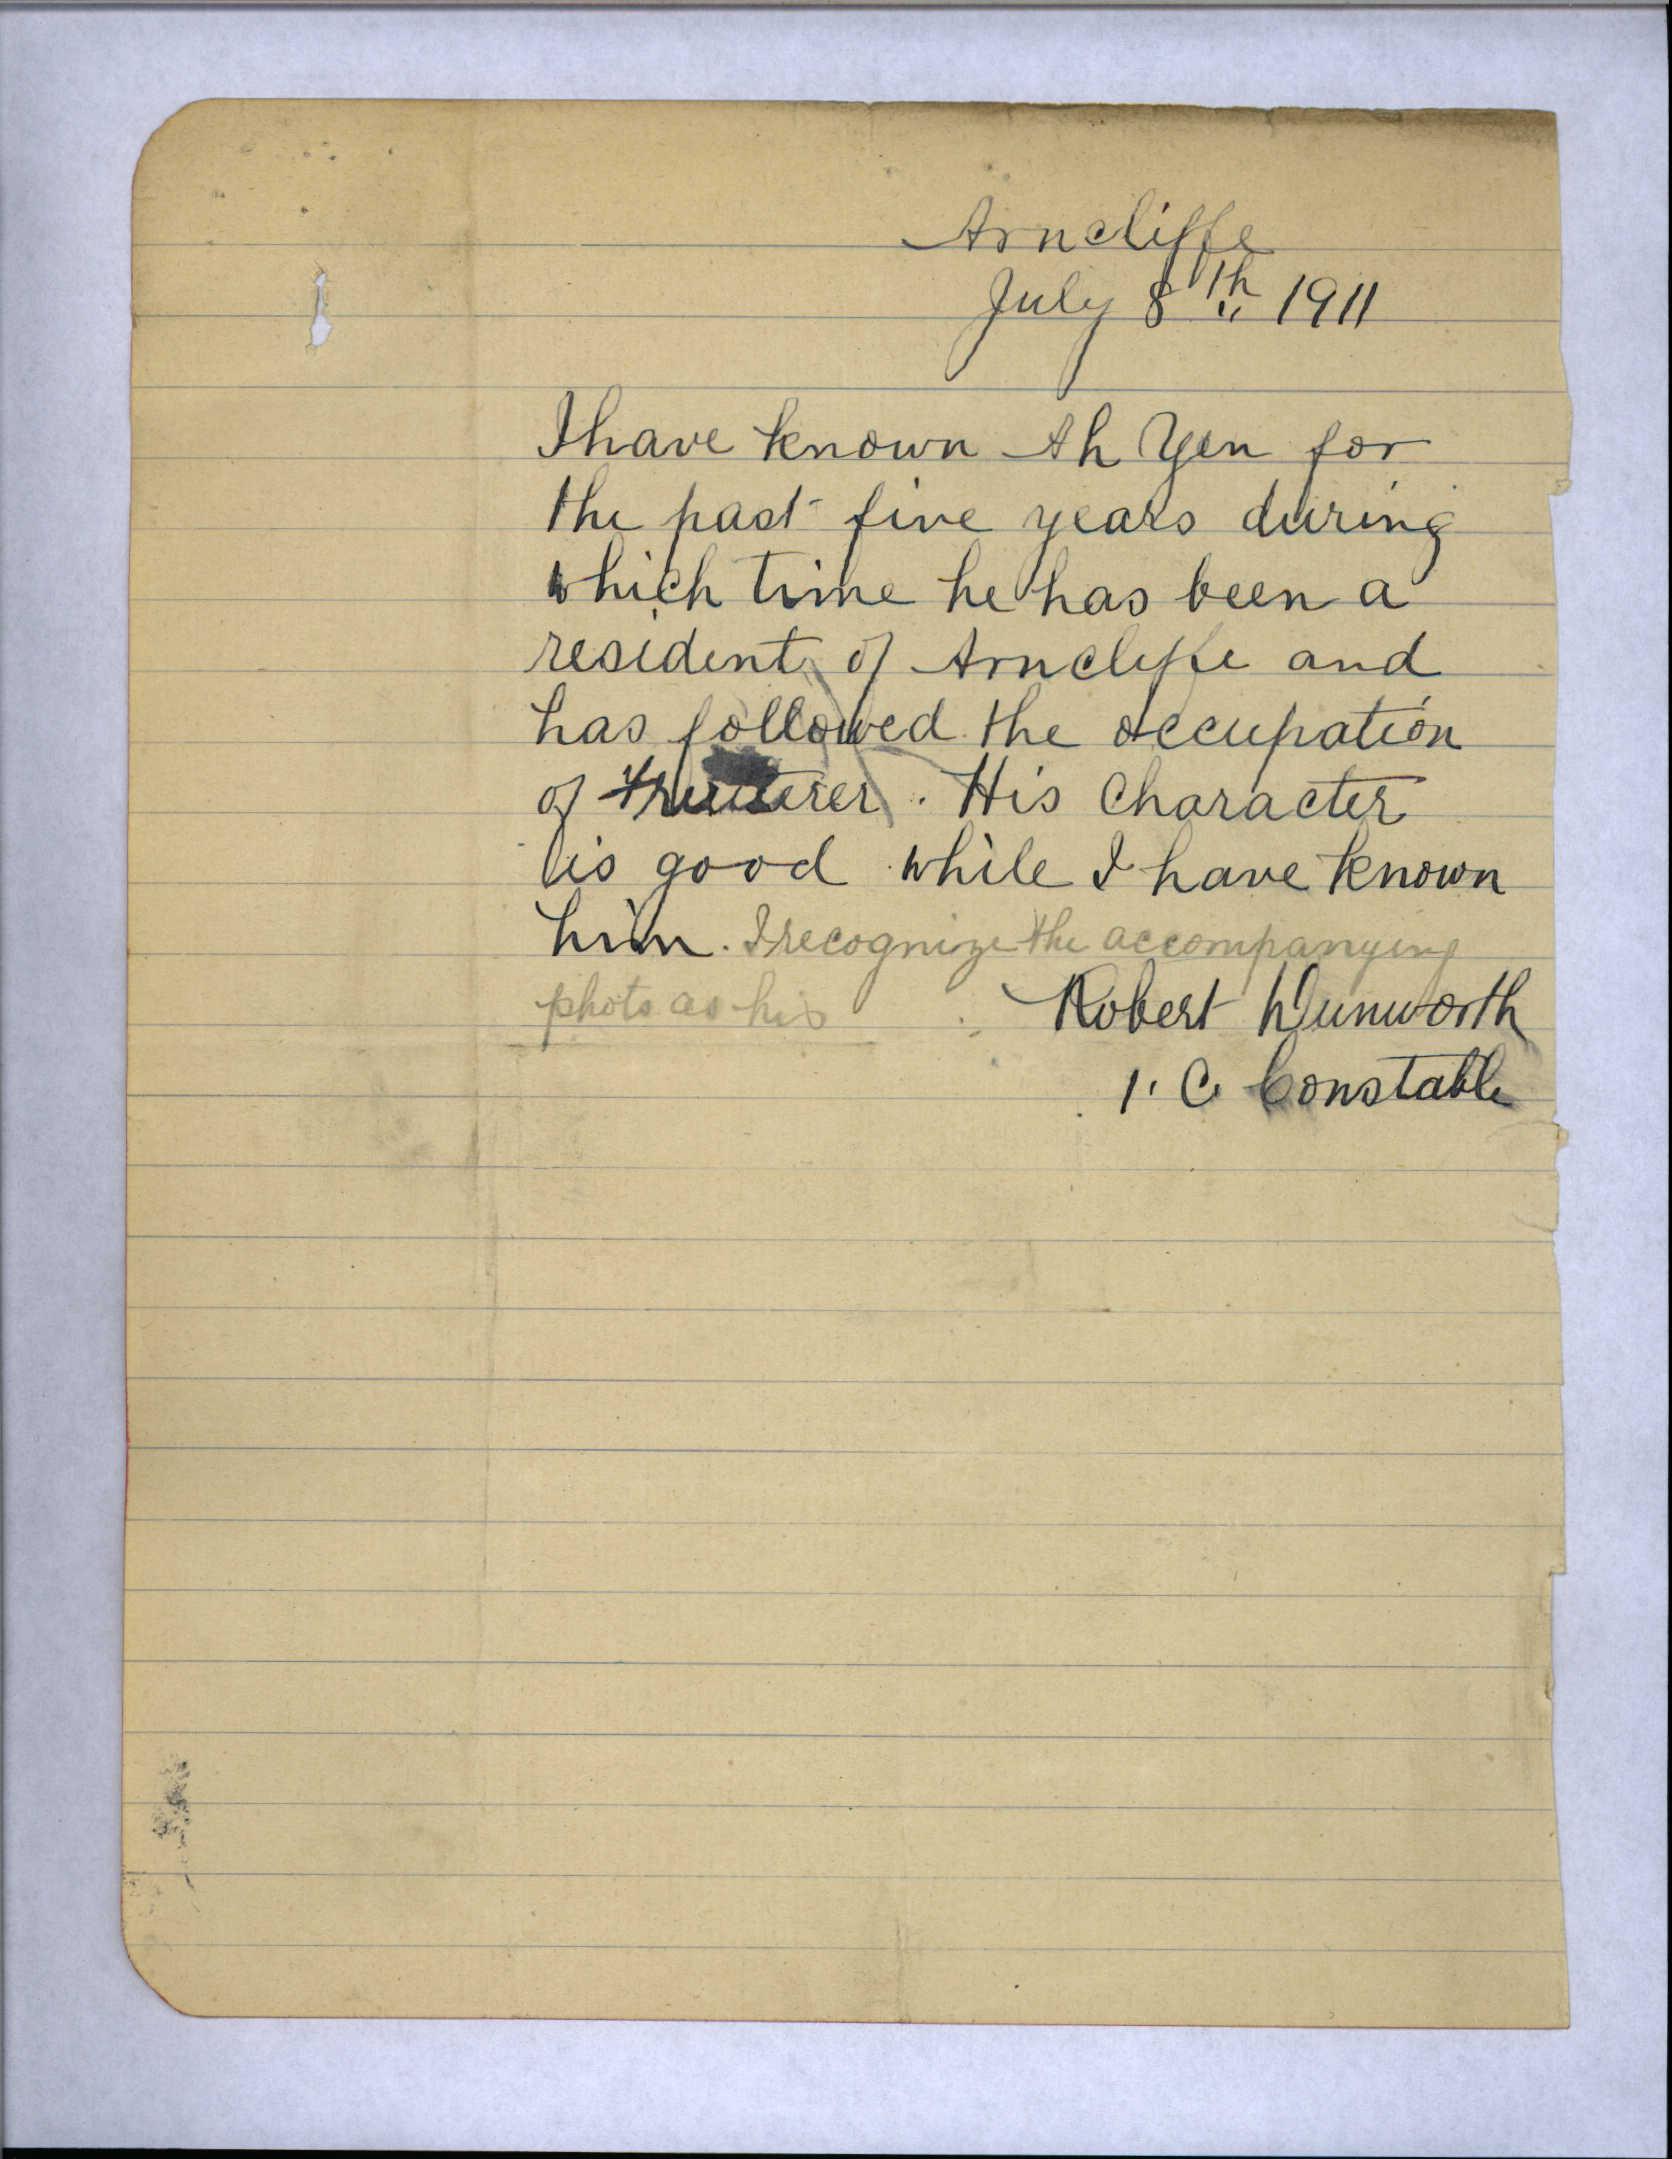 Arncliffe
July 8th 1911
I have known Ah Yen for
the past five years during
which time he has been a
resident of Arncliffe and
has followed the occupation
of fruiterer. His Character
is good while I have known
him. I recognize the accompanying
photo as his
Robert Dunworth
1. C Constable